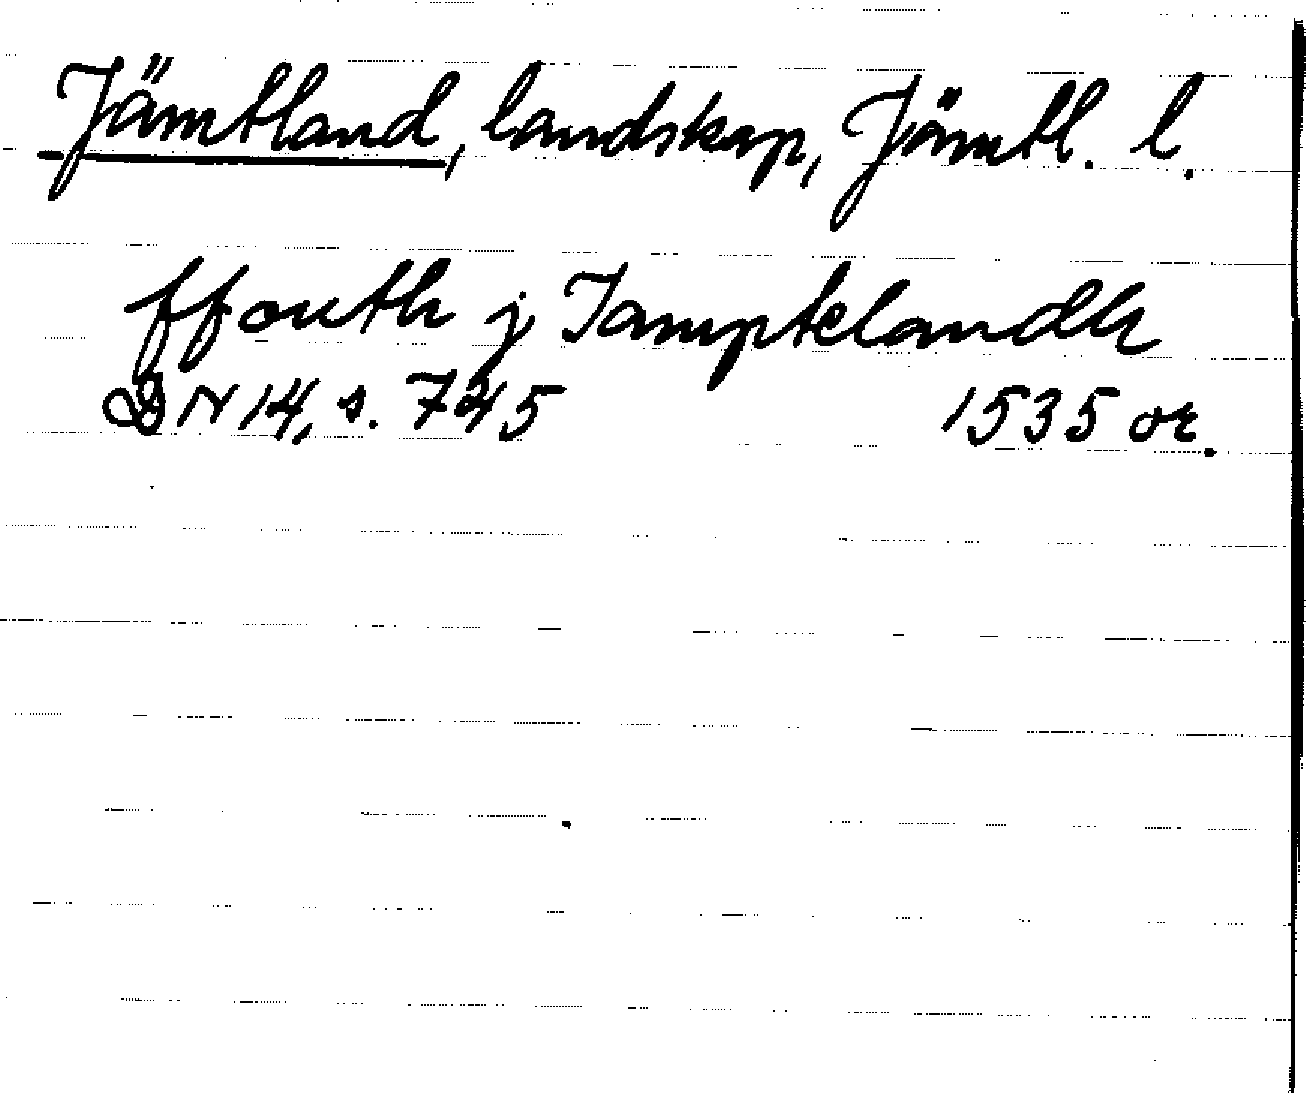 Jämtland, landskap, Jämtl. l.
ffouth j Jampteland
DN 14, s. 745 1535 or.